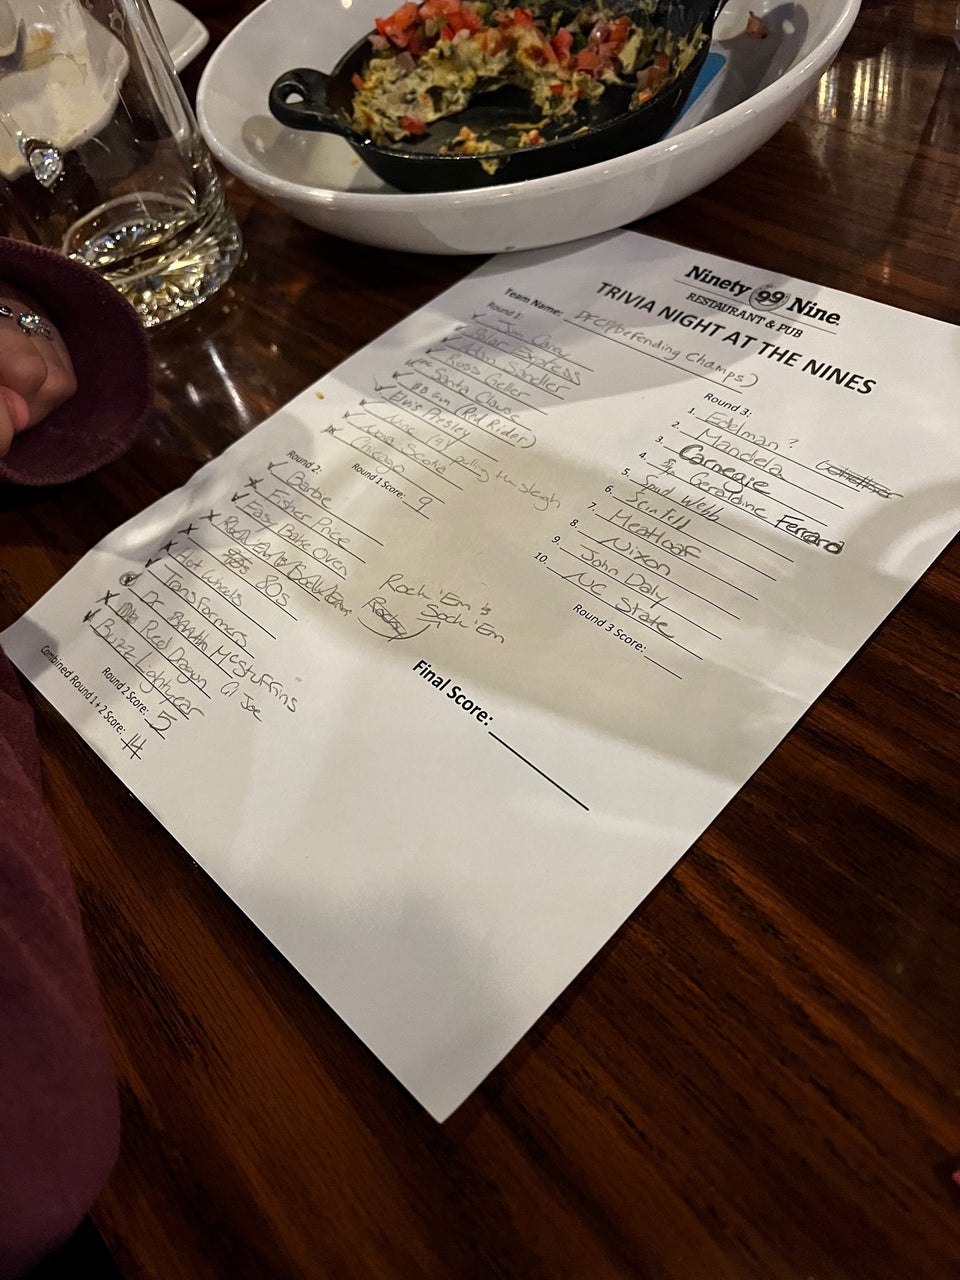 Ninety 99 Nine
RESTAURANT & PUB
TRIVIA NIGHT AT THE NINES
Team Name: DFCP(Defending Champs)
Round 1:
Jim Carrey
Polar Express
Adam Sandler
Ross Geller
Santa Clause
BB Gun (Red Rider)
Elvis Presley
Nine (9) pulling his sleigh
Nova Scotia
Chicago
Round 1 Score: 9
Round 2:
Barbie
Fisher Price
Easy Bake Oven
Rock 'Em Sock 'Em
80s
Hot Wheels
Transformers
Dr McStuffins
Red Dragon GI Joe
Buzz Lightyear
Round 2 Score: 5
Combined Round 1 + 2 Score: 14
Round 3:
1. Edelman ?
2. Mandela
3. Carnegie
4. Geraldine Ferraro
5. Spud Webb
6. Seinfeld
7. Meatloaf
8. Nixon
9. John Daly
10. NC State
Round 3 Score:
Final Score: